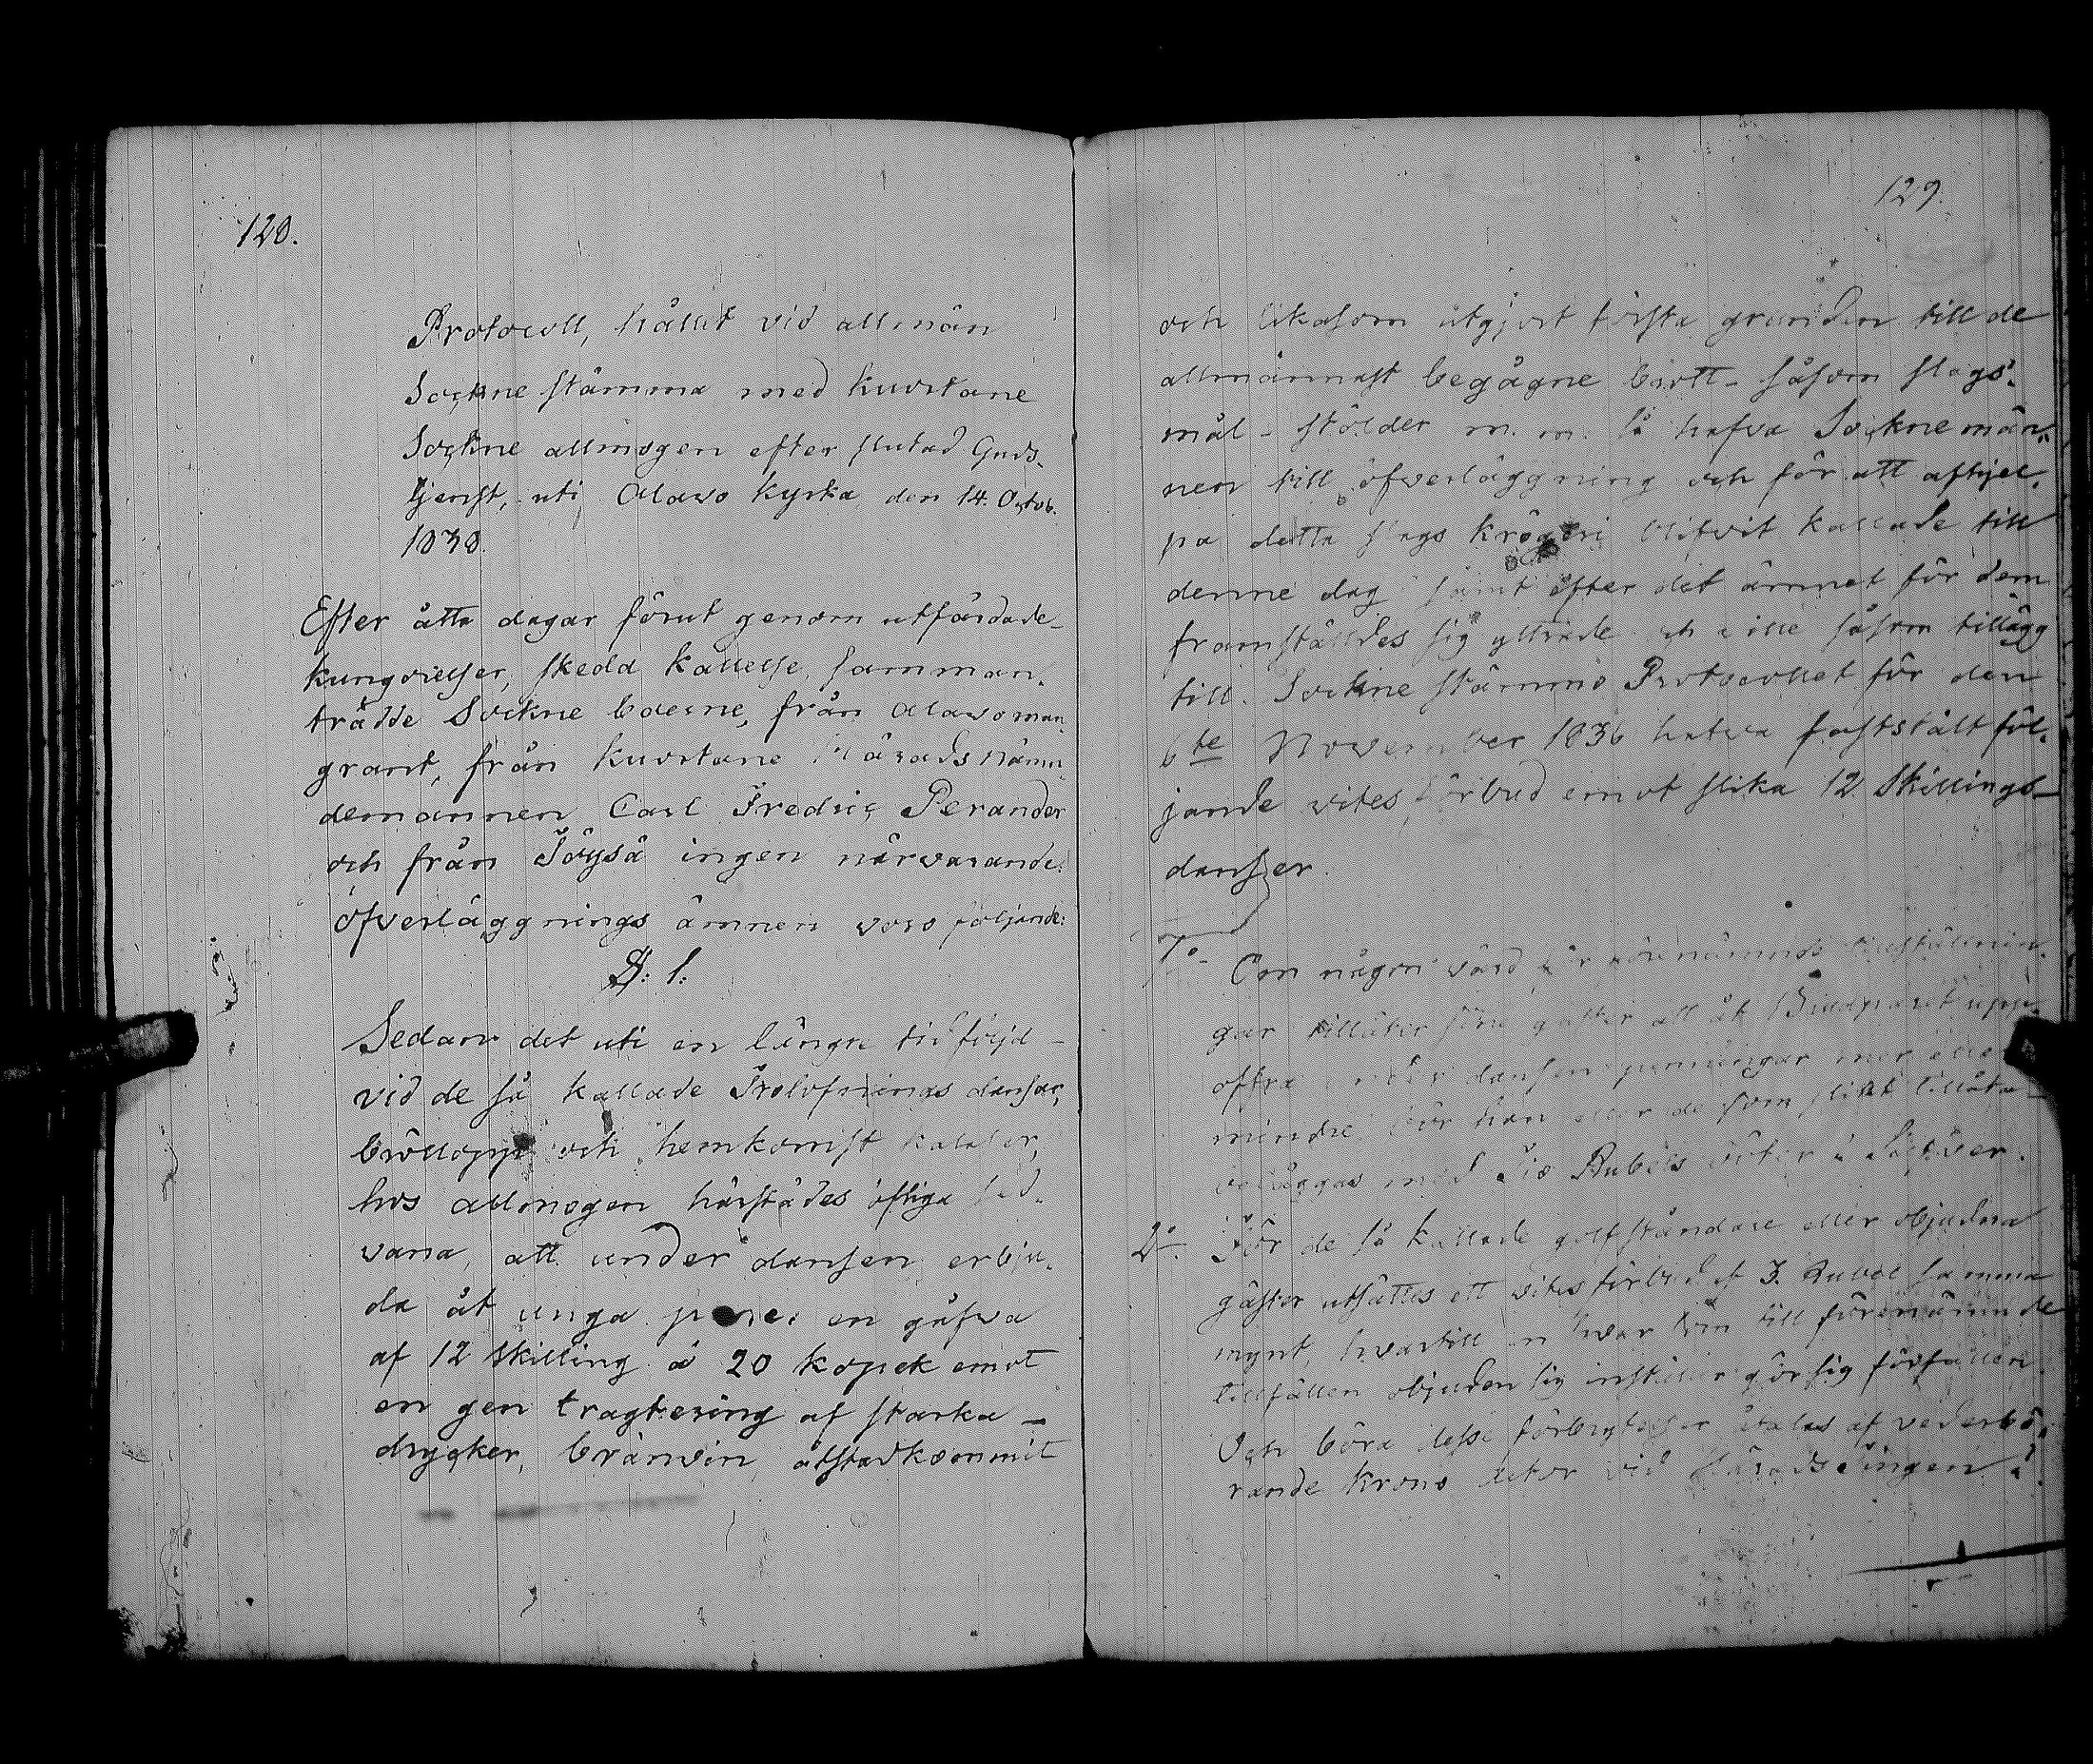 128.
Protocoll, hållit vid allmän
Sockne stämma med Kuortane
Sockne allmogen efter slutad Guds-
tjenst, uti Alavo Kyrka den 14. Octob.
1838.
Efter åtta dagar förut genom utfärdade
kungörelser, skedd kallelse samman-
trädde Sockne boerne, från Alavo man
grant, från Kuortane Häradsnämn
demannen Carl Fredric Perander
och från Töysä ingen närvarande.
öfverläggnings ämnen voro följande:
§: 1:
Sedan det uti en längre tidföljd
vid de så kallade Trolofnings dansar,
bröllopps och hemkomst kalaser,
hos allmogen härstädes öfliga sed-
vana, att under dansen erbju-
da åt unga paret en gåfva
af 12 skilling à 20 kopek emot
en gen tragtering af starka
drycker, bränvin, åtstadkommit
129.
och likasom utgjort första grunden till de
allmännast begågne brott - såsom slags-
mål - stölder m. m. så hafva Socknemän-
nen till öfverläggning och för att afhjel-
pa detta slags krögeri blifvit kallade till
denne dag samt efter det ämnet för dem
framställdes sig yttrade och ville såsom tillägg
till Sockne stämmo Protocollet för den
6te November 1836 hafva fastställt föl-
jande vites förbud emot slika 12 Skillings
danser.
1o Om någon värd för förenämnde tillställnin-
gar tillåter sine gäster att åt Brudparet upp-
offra under dansen penningar mer eller
mindre bör han eller de som slikt tillåta
beläggas med Tio Rubels böter i Silfver.
2o För de så kallade golfståndare eller objudna
gäster utsättes ett vites förbud af 3. Rubel samma
mynt, hvartill en hvar som till förenämnde
tillfällen objuden sig inställer gör sig förfallen
Och böra desse förbrytelser åtalas af vederbö-
rande Krono actor vid Häradstingen.